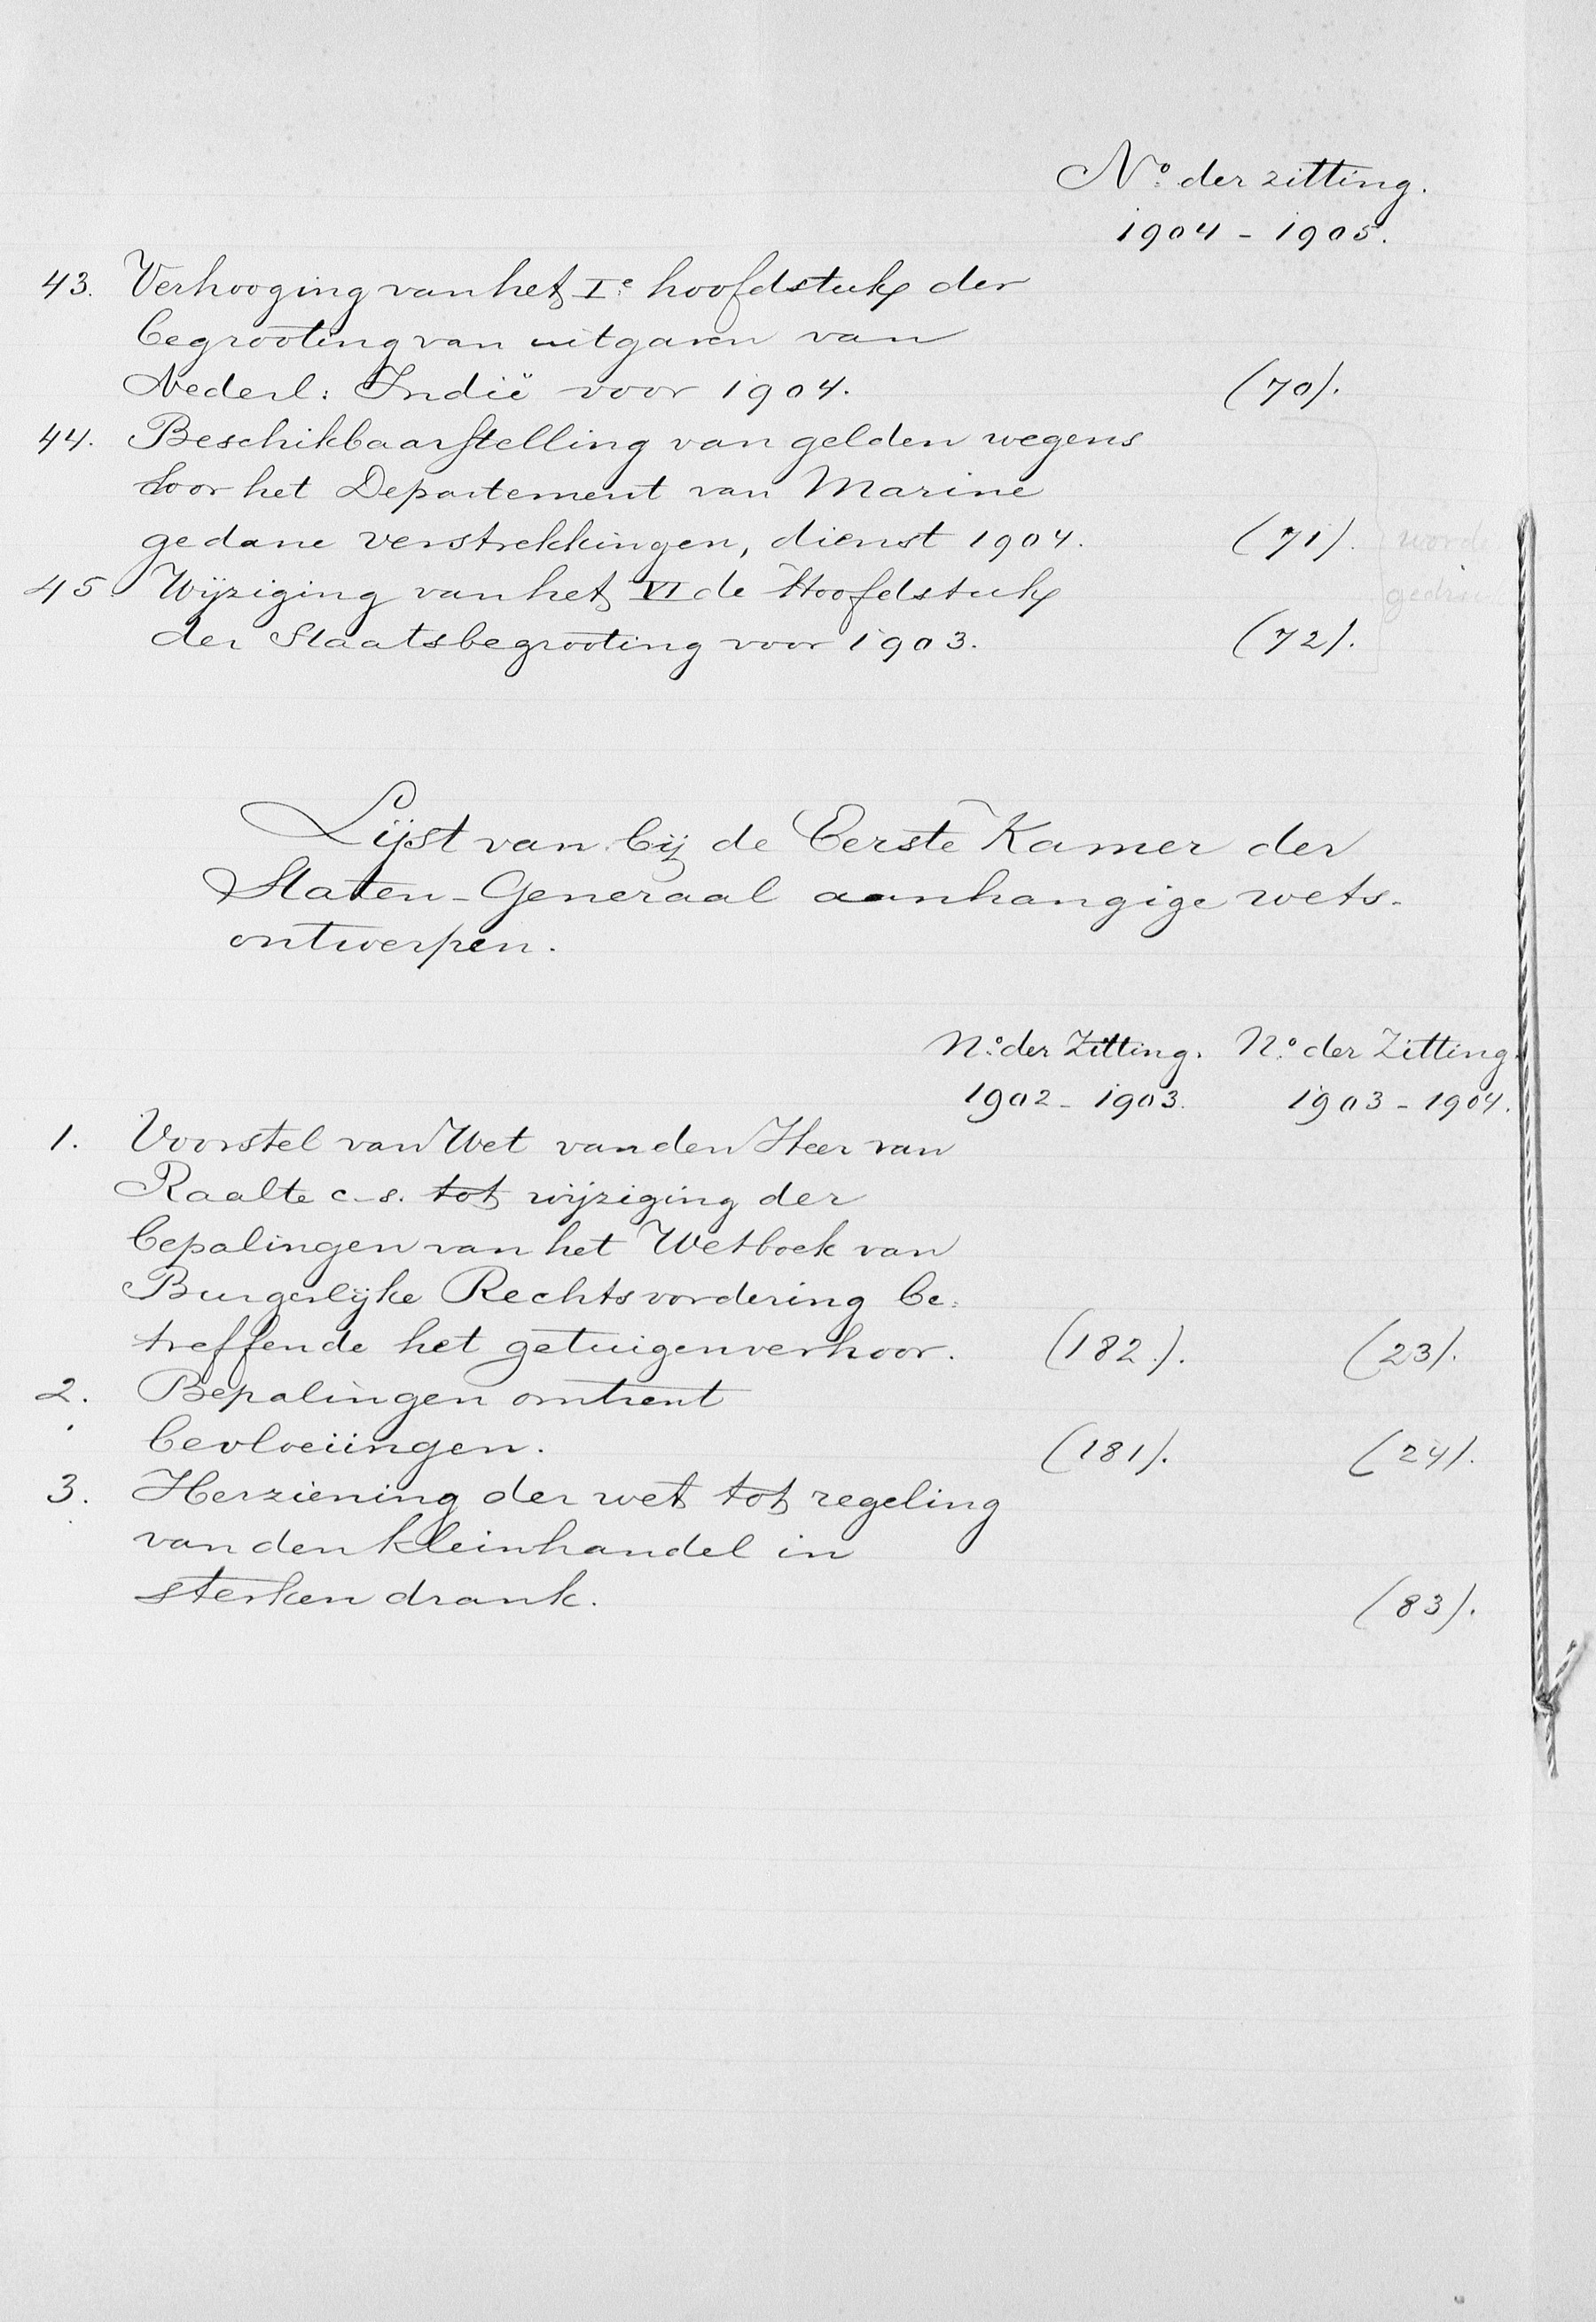 No. der zitting.
1904 - 1905.
43. Verhooging van het Ie hoofdstuk der
begrooting van uitgaven van
Nederl: Indië voor 1904. (70).
44. Beschikbaarstelling van gelden wegens
door het Departement van Marine
gedane verstrekkingen, dienst 1904. (71). worde
45. Wijziging van het VIde Hoofdstuk gedrukt
der Staatsbegrooting voor 1903. (72).
Lijst van bij de Eerste Kamer der
Staten-Generaal aanhangige wets-
ontwerpen.
No. der Zitting. No. der Zitting.
1902 - 1903. 1903 - 1904.
1. Voorstel van Wet van den Heer van
Raalte c.s. tot wijziging der
bepalingen van het Wetboek van
Burgerlijke Rechtsvordering be:
treffende het getuigenverhoor. (182.). (23).
2. Bepalingen omtrent
bevloeiingen. (181). (24).
3. Herziening der wet tot regeling
van den kleinhandel in
sterken drank. (83).